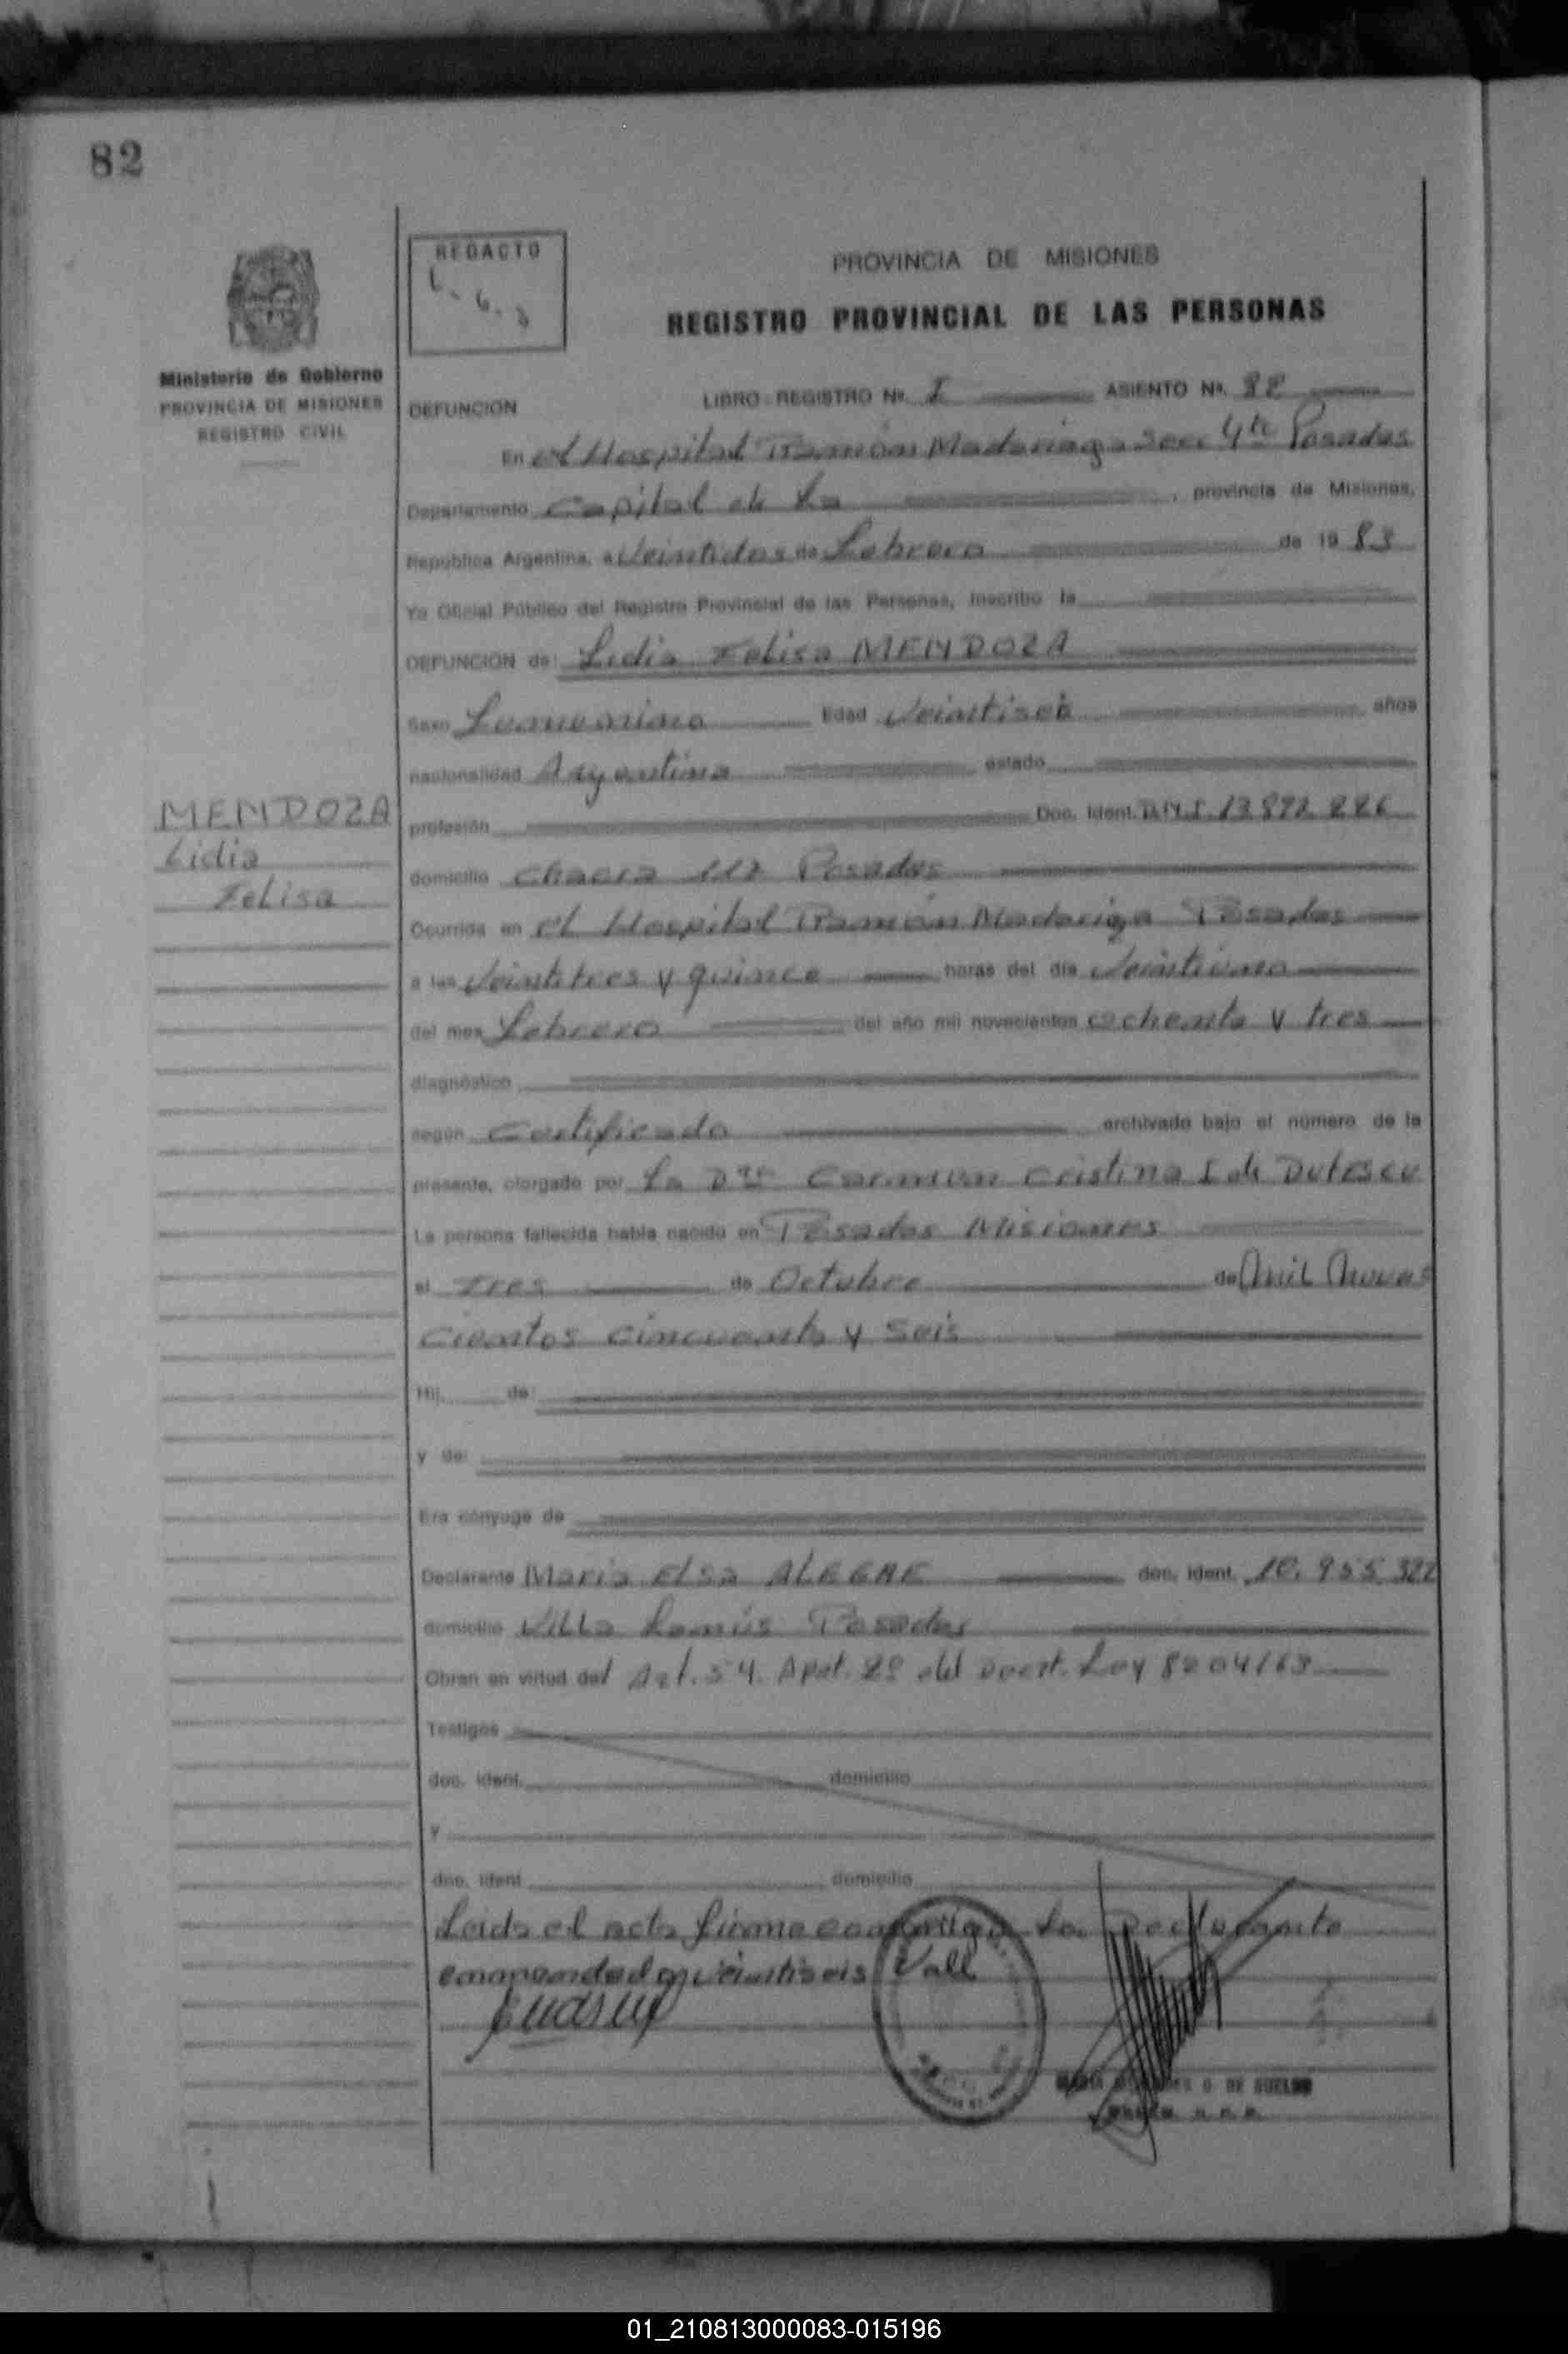 82
REDACTO
PROVINCIA DE MISIONES
REGISTRO PROVINCIAL DE LAS PERSONAS
Ministerio de Gobierno
PROVINCIA DE MISIONES
REGISTRO CIVIL
DEFUNCION LIBRO REGISTRO Nº. I ASIENTO Nº. 82
En el Hospital Ramón Madariaga Secc 4ta Posadas
Departamento Capital de la, provincia de Misiones,
República Argentina, a Veintidos de Febrero de 19 83
Yo Oficial Público del Registro Provincial de las Personas, inscribo la
DEFUNCION de: Lidia Felisa MENDOZA
Sexo Femenino Edad Veintiseis años
nacionalidad Argentina estado
MENDOZA
Lidia
Felisa
profesión Doc. Ident. D.N.I. 12.892.226
domicilio Chacra 117 Posadas
Ocurrida en el Hospital Ramón Madariaga Posadas
a las Veintitres y quince horas del día Veintiuno
del mes Febrero del año mil novecientos ochenta y tres
diagnóstico
según Certificado archivado bajo el número de la
presente, otorgado por La Dra Carmen Cristina I de Dutescu
La persona fallecida había nacido en Posadas Misiones
el Tres de Octubre de Mil Nove
cientos cincuenta y Seis
Hij de:
y de:
Era cónyuge de
Declarante Maria Elsa ALEGRE doc. ident. 10.955.322
domicilio Villa Lanús Posadas
Obran en virtud del Art. 54. Apat. 2º del Decrt. Ley 8204/63
Testigos
doc. ident. domicilio
y
doc. ident. domicilio
Leida el acta firma conmigo La Declarante
enmendado: veintiseis Vall
G. DE SUELDO
01_210813000083-015196